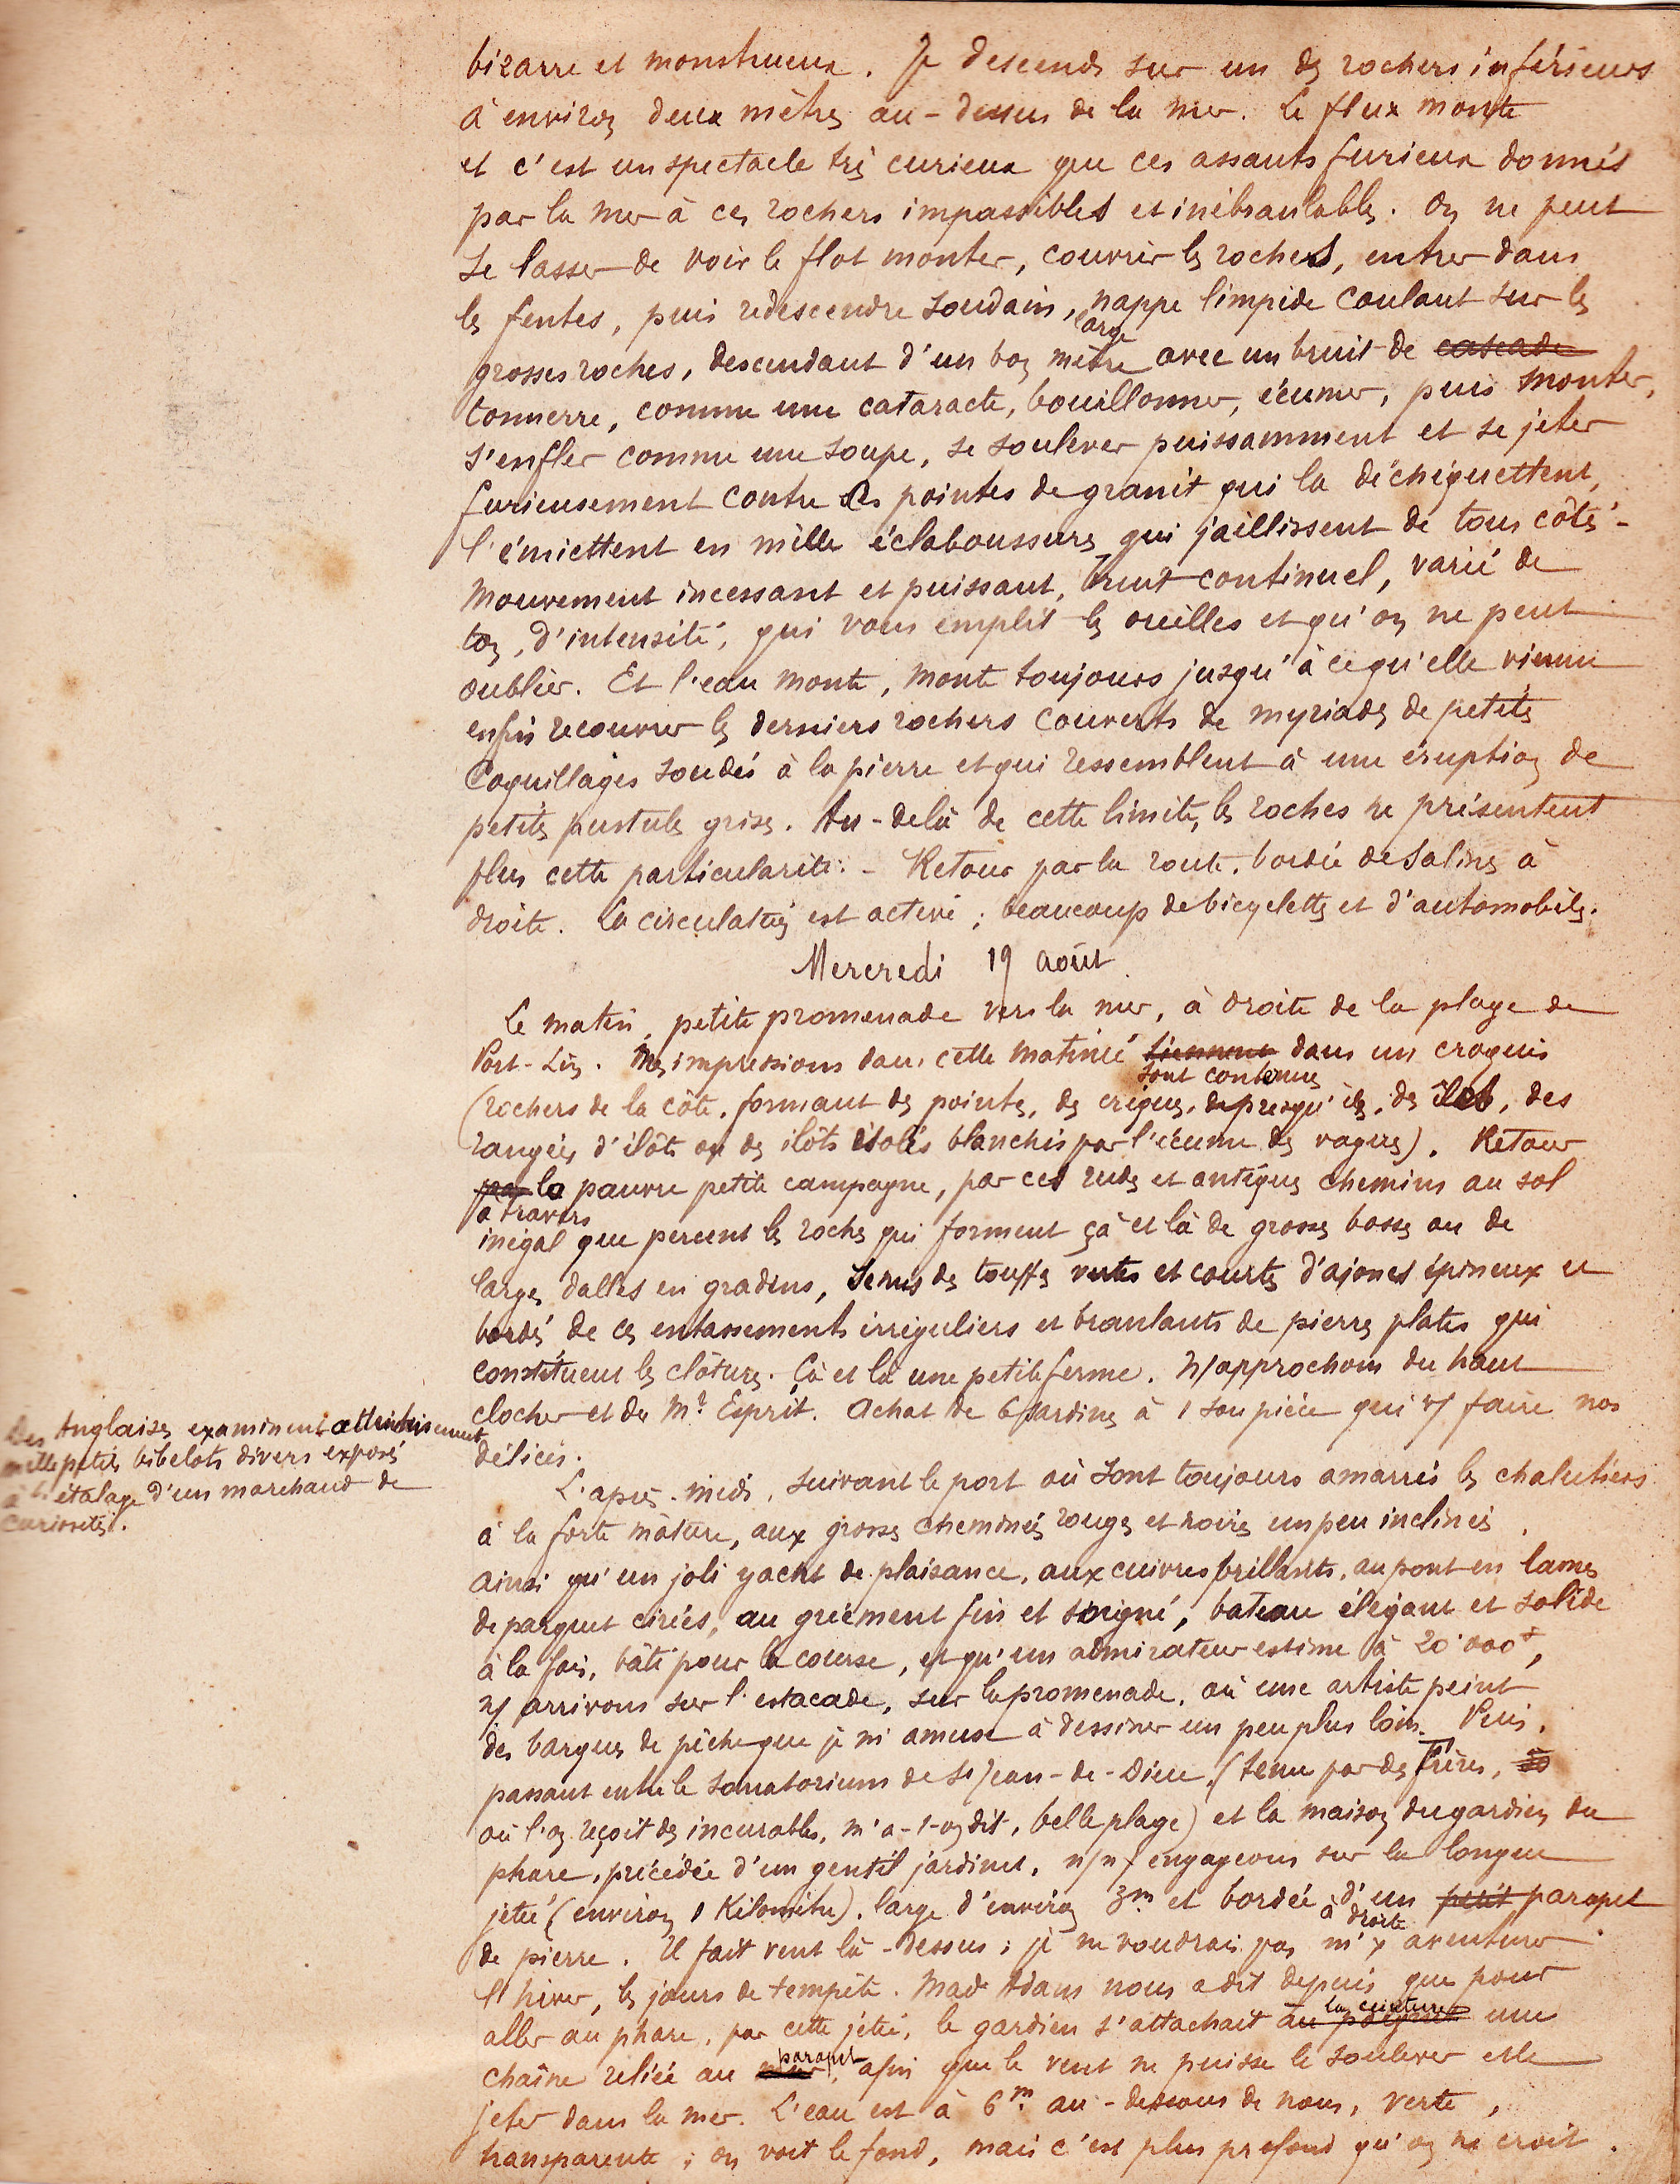 bizarre et monstrueux. Je descends sur un des rochers inférieurs
à environ deux mètres au-dessus de la mer. Le flux monte
et c'est un spectacle très curieux que ces assauts furieux donnés
par la mer à ces rochers impassibles et inébranlables. On ne peut
se lasser de voir le flot monter, couvrir les roches, entrer dans
les fentes, puis redescendre soudain, nappe limpide coulant sur les
large
grosses roches, descendant d'un bon mètre avec un bruit de cascade
tonnerre, comme une cataracte, bouillonner, écumer, puis monter,
s'enfler comme une soupe, se soulever puissamment et se jeter
furieusement contre les pointes de granit qui la déchiquettent,
l'émiettent en mille éclaboussures qui jaillissent de tous côtés -
mouvement incessant et puissant, bruit continuel, varié de
ton, d'intensité, qui vous emplit les oreilles et qu'on ne peut
oublier. Et l'eau monte, monte toujours jusqu'à ce qu'elle vienne
enfin recouvrer les derniers rochers couverts de myriades de petits
coquillages soudés à la pierre et qui ressemblent à une éruption de
petites pustules grises. Au-delà de cette limite, les roches ne présentent
plus cette particularité. - Retour par la route, bordée de salines à
droite. La circulation est active ; beaucoup de bicyclettes et d'automobiles.
Mercredi 19 août.
Le matin, petite promenade vers la mer, à droite de la plage de
Port-Lin. Mes impressions dans cette matinée tiennent dans un croquis
sont contenues
(rochers de la côte, formant des pointes, des criques, des presqu'îles, des îlots, des
rangées d'îlots ou des îlots isolés blanchis par l'écume des vagues). Retour
par la pauvre petite campagne, par ces rudes et antiques chemins au sol
à travers
inégal que percent les roches qui forment çà et là de grosses bosses ou de
larges dalles en gradins, semés des touffes vertes et courtes d'ajoncs épineux et
bordés de ces entassements irréguliers et branlants de pierres plates qui
constituent les clôtures. Çà et là une petite ferme. N/approchons du haut
clocher et du Mn Esprit. Achat de 6 sardines à 1 sou pièce qui vt faire nos
délices.
Des Anglaises examinent attentivement
mille petits bibelots divers exposés
à l'étalage d'un marchand de
curiosités.
L'après-midi, suivant le port où sont toujours amarrés les chalutiers
à la forte mâture, aux grosses cheminées rouges et noires un peu inclinées,
ainsi qu'un joli yacht de plaisance, aux cuivres brillants, au pont en lames
de parquet cirées, au gréement fin et soigné, bateau élégant et solide
à la fois, bâti pour la course, et qu'un admirateur estime à 20.000f,
n/ arrivons sur l'estacade, sur la promenade, où une artiste peint
des barques de pêche que je m'amuse à dessiner un peu plus loin. Puis,
passant entre le sanatorium de St Jean-de-Dieu, (tenu par des frères,
où l'on reçoit des incurables, m'a-t-on dit, belle plage) et la maison du gardien du
phare, précédée d'un gentil jardinet, n/n/ engageons sur la longue
jetée (environ 1 kilomètre), large d'environ 3m et bordée d'un petit parapet
à droite
de pierre. Il fait vent là-dessus ; je ne voudrais pas m'y aventurer
l'hiver, les jours de tempête. Made Adans nous a dit depuis que pour
la ceinture
aller au phare, par cette jetée, le gardien s'attachait au poignet une
parapet
chaîne reliée au mur, afin que le vent ne puisse le soulever et le
jeter dans la mer. L'eau est à 6m au-dessous de nous, verte,
transparente ; on voit le fond, mais c'est plus profond qu'on ne croit.